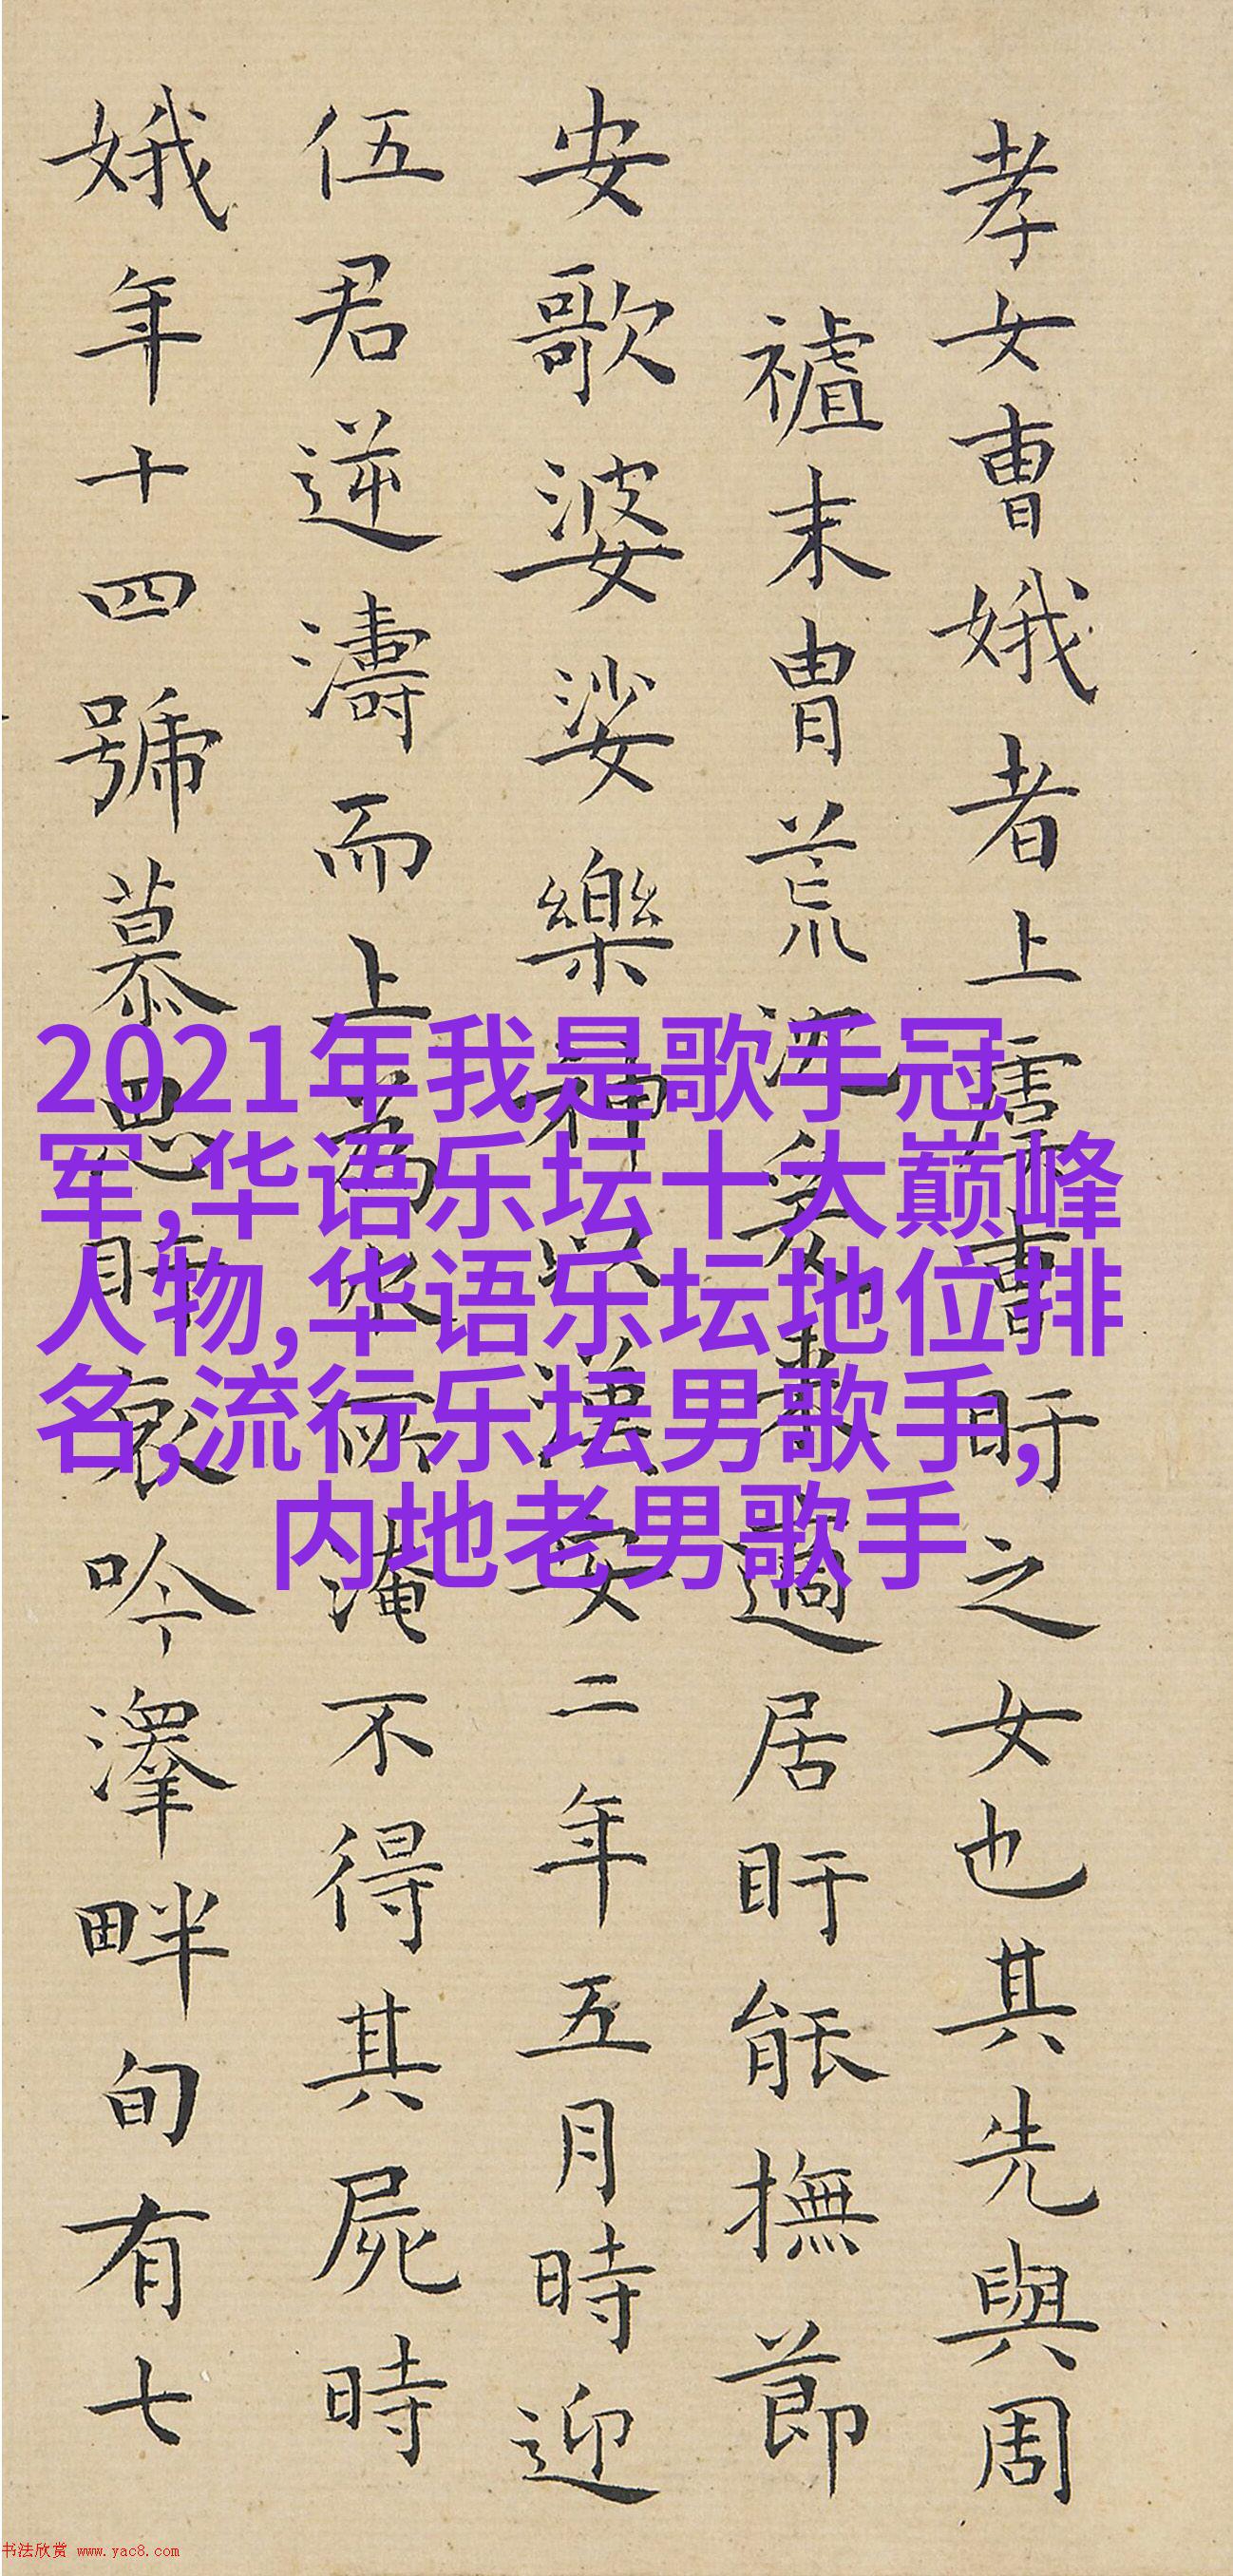 孝女曹娥者上虞曹盱之女也其先與周
末胄荒沉爰来適居盱能撫節
安歌婆娑樂神以漢安二年五月時迎
伍君逆濤而上為水所淹不得其屍時
娥年十四號慕思盱哀吟澤畔旬有七
2021年我是歌手冠
军,华语乐坛十大巅峰
人物,华语乐坛地位排
名,流行乐坛男歌手,
内地老男歌手
书法欣赏 www.yac8.com